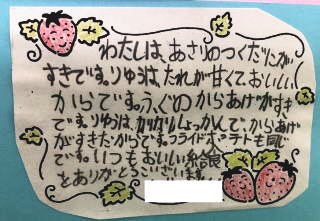 わたしは、あさりのつくだにが
すきです。りゆうは、たれが甘くておいしい
からです。ふぐのからあげがすき
です。りゆうは、カリカリしょっかんで、からあげ
がすきだからです。フライドポテトも同じ
です。いつもおいしい給食
をありがとうございます。